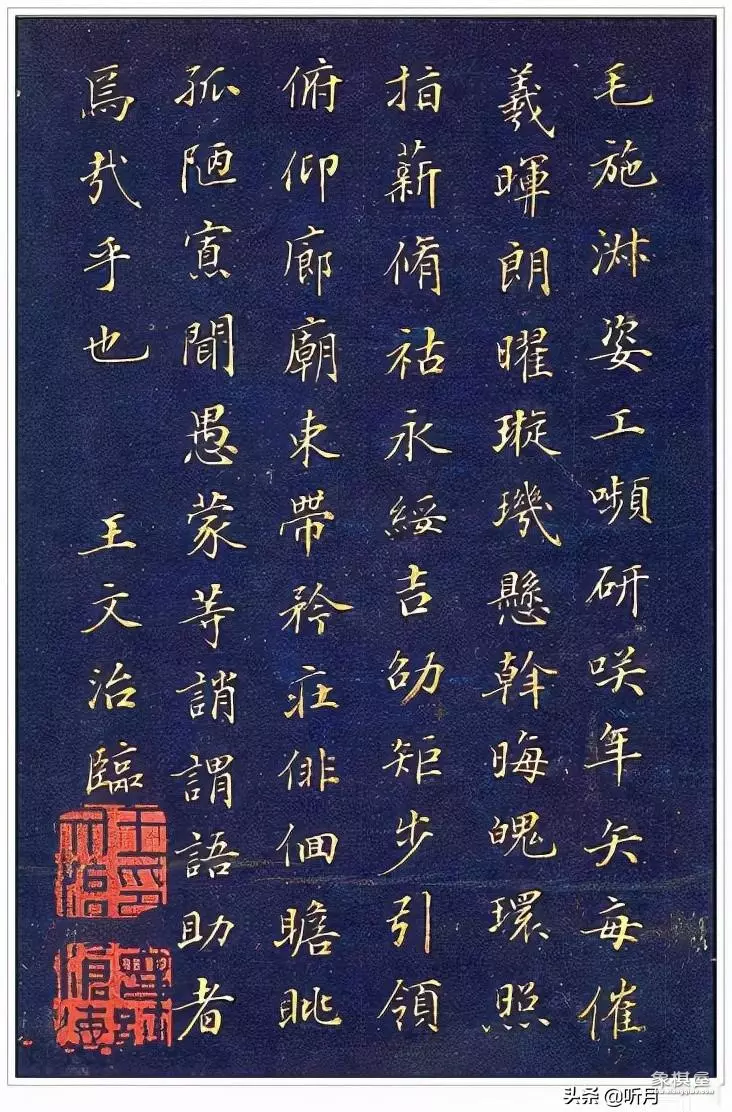 毛施淑姿工嚬研咲年矢每催
羲暉朗曜璇璣懸斡晦魄環照
指薪脩祜永綏吉劭矩步引領
俯仰廊廟束帶矜莊俳佪瞻眺
孤陋寡聞愚蒙等誚謂語助者
焉哉乎也 王文治臨
王文治印
象棋屋
头条 @听月